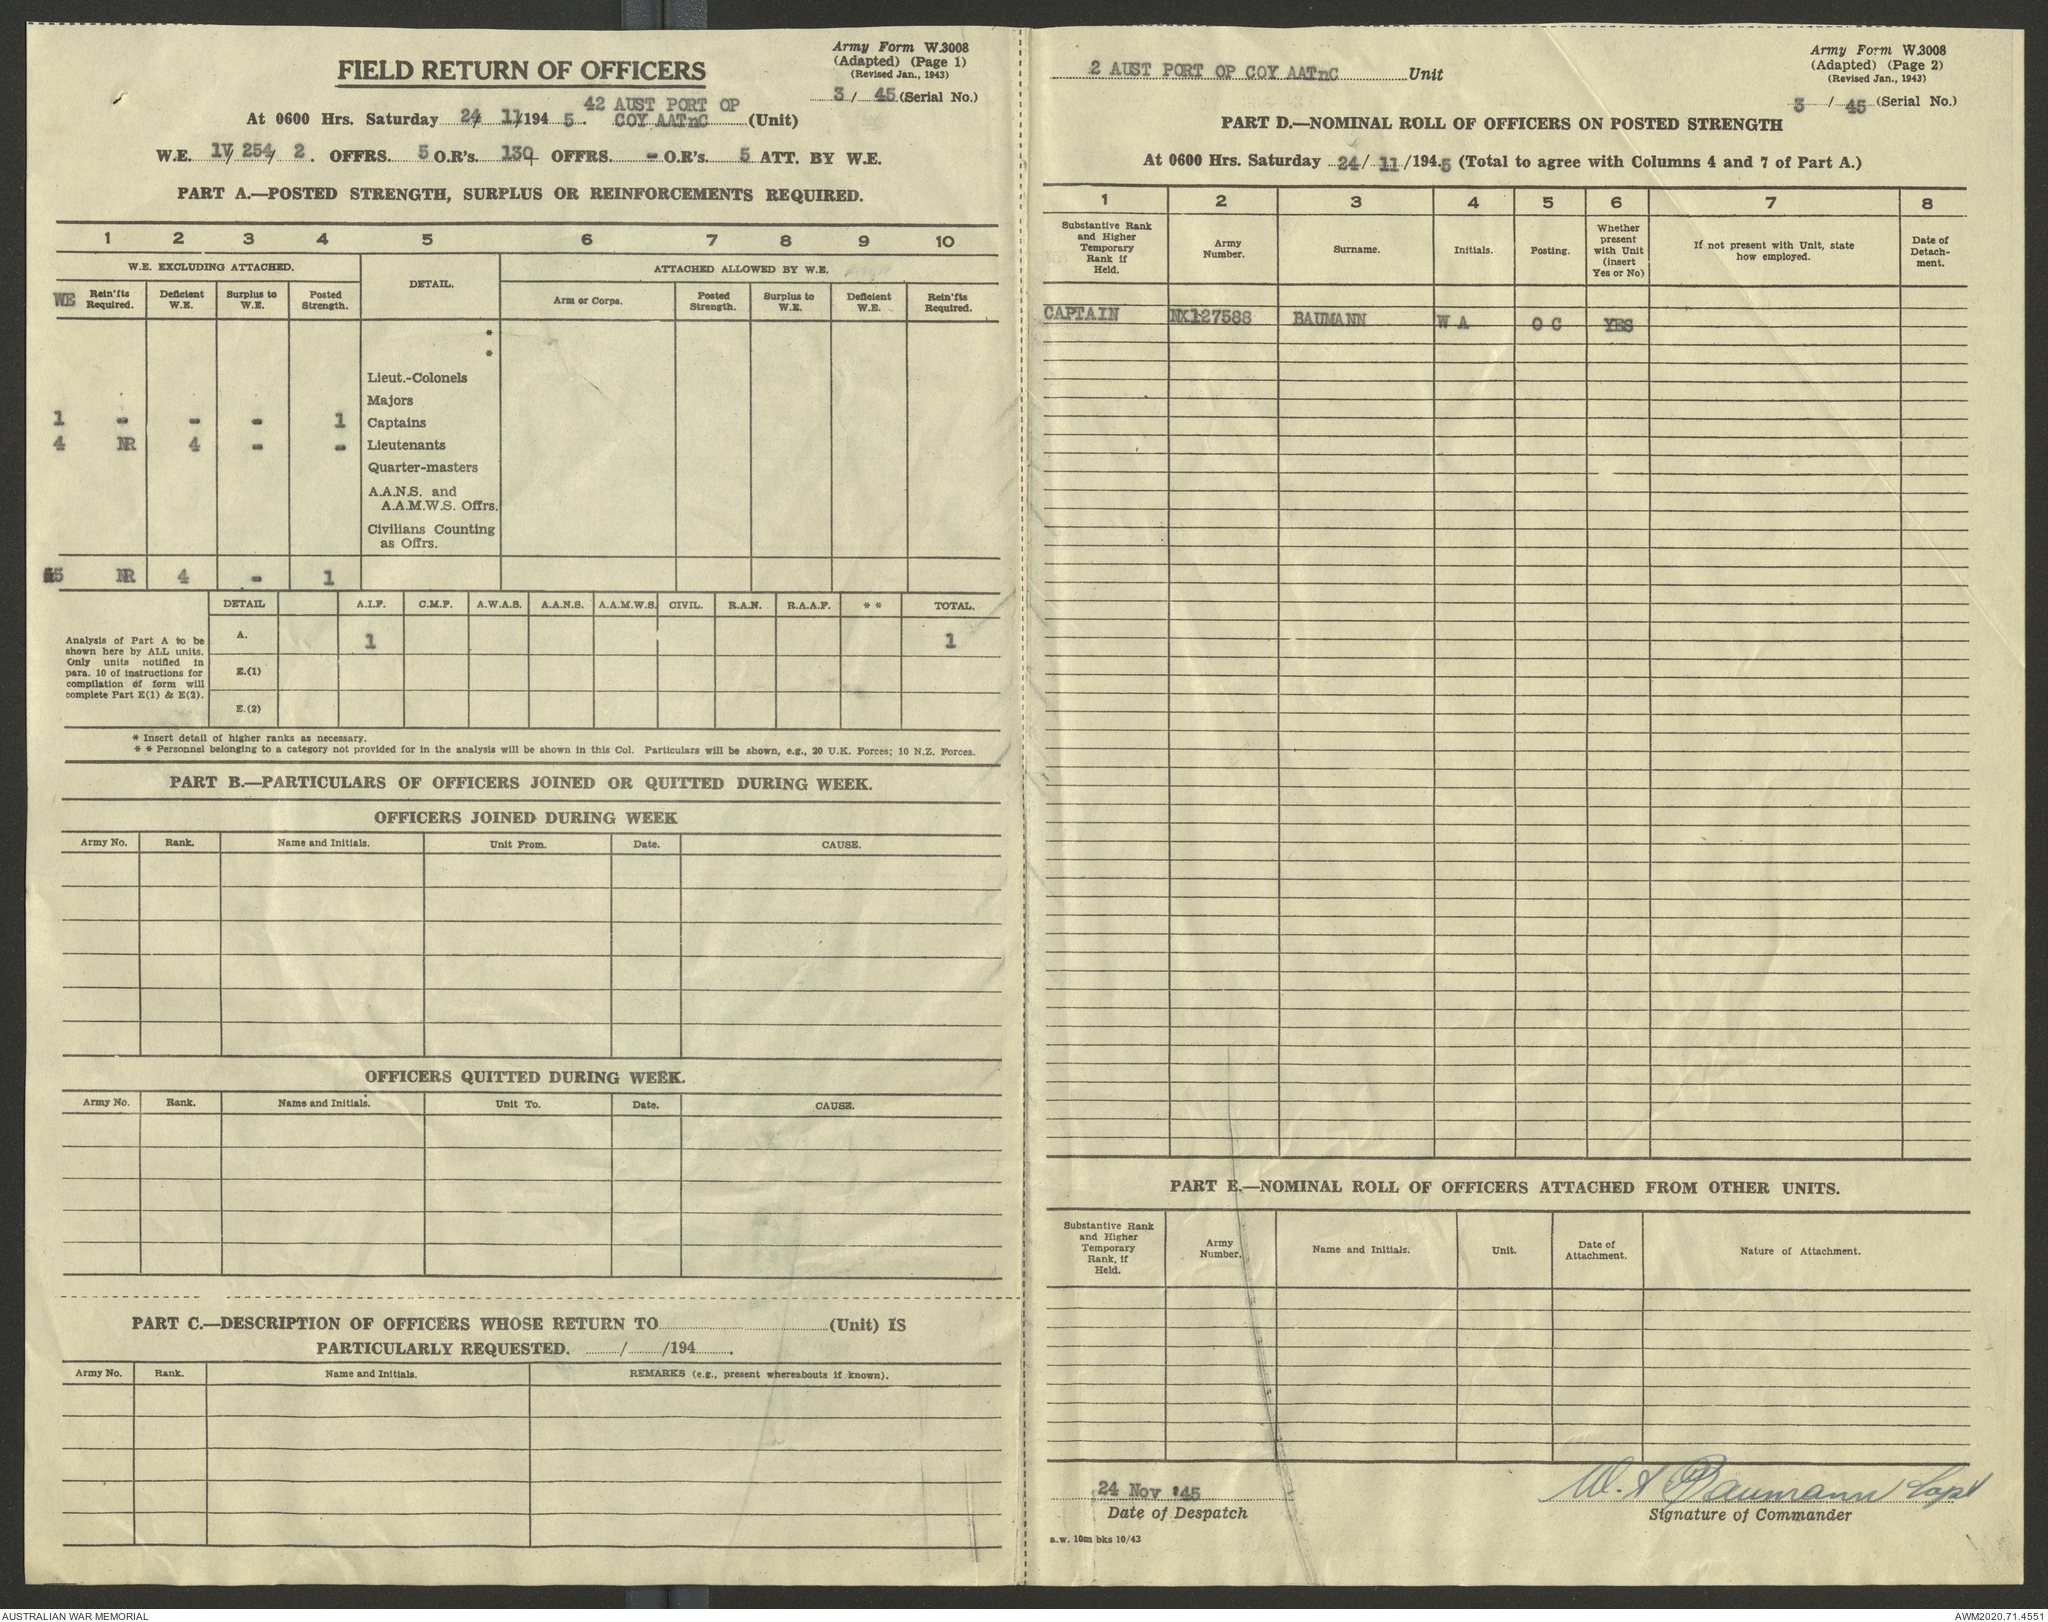 Army Form W.3008
(Adapted) (Page 1)
(Revised Jan., 1943)
FIELD RETURN OF OFFICERS
3 / 45 (Serial No.)
42 AUST PORT OP
At 0600 Hrs. Saturday 24/ 11/194 5. COY AATnC (Unit)
W.E. 1V/ 254/ 2. OFFRS. 5 O.R's. 130 OFFRS. - O.R's. 5 ATT. BY W.E.
PART A.—POSTED STRENGTH, SURPLUS OR REINFORCEMENTS REQUIRED.
1 2 3 4 5 6 7 8 9 10
W.E. EXCLUDING ATTACHED. DETAIL. ATTACHED ALLOWED BY W.E.
WE Rein'fts Required. Deficient W.E. Surplus to W.E. Posted Strength. Arm or Corps. Posted Strength. Surplus to W.E. Deficient W.E. Rein'fts Required.
*
*
Lieut.-Colonels
Majors
1 - - - 1 Captains
4 NR 4 - - Lieutenants
Quarter-masters
A.A.N.S. and
A.A.M.W.S. Offrs.
Civilians Counting
as Offrs.
5 NR 4 - 1
DETAIL A.I.F. C.M.F. A.W.A.S. A.A.N.S. A.A.M.W.S. CIVIL. R.A.N. R.A.A.F. * * TOTAL.
Analysis of Part A to be
shown here by ALL units.
Only units notified in
para. 10 of instructions for
compilation of form will
complete Part E(1) & E(2).
A. 1 1
E.(1)
E.(2)
* Insert detail of higher ranks as necessary.
* * Personnel belonging to a category not provided for in the analysis will be shown in this Col. Particulars will be shown, e.g., 20 U.K. Forces; 10 N.Z. Forces.
PART B.—PARTICULARS OF OFFICERS JOINED OR QUITTED DURING WEEK.
OFFICERS JOINED DURING WEEK
Army No. Rank. Name and Initials. Unit From. Date. CAUSE.
OFFICERS QUITTED DURING WEEK.
Army No. Rank. Name and Initials. Unit To. Date. CAUSE.
PART C.—DESCRIPTION OF OFFICERS WHOSE RETURN TO (Unit) IS
PARTICULARLY REQUESTED. / /194 .
Army No. Rank. Name and Initials. REMARKS (e.g., present whereabouts if known).
Army Form W.3008
(Adapted) (Page 2)
(Revised Jan., 1943)
2 AUST PORT OP COY AATnC Unit
3 / 45 (Serial No.)
PART D.—NOMINAL ROLL OF OFFICERS ON POSTED STRENGTH
At 0600 Hrs. Saturday 24/ 11 /194.5 (Total to agree with Columns 4 and 7 of Part A.)
1 2 3 4 5 6 7 8
Substantive Rank and Higher Temporary Rank if Held. Army Number. Surname. Initials. Posting. Whether present with Unit (insert Yes or No) If not present with Unit, state how employed. Date of Detach-ment.
CAPTAIN NX127588 BAUMANN W A O C YES
PART E.—NOMINAL ROLL OF OFFICERS ATTACHED FROM OTHER UNITS.
Substantive Rank and Higher Temporary Rank, if Held. Army Number. Name and Initials. Unit. Date of Attachment. Nature of Attachment.
24 Nov '45 W. A Baumann Capt
Date of Despatch Signature of Commander
a.w. 10m bks 10/43
AUSTRALIAN WAR MEMORIAL AWM2020.71.4551